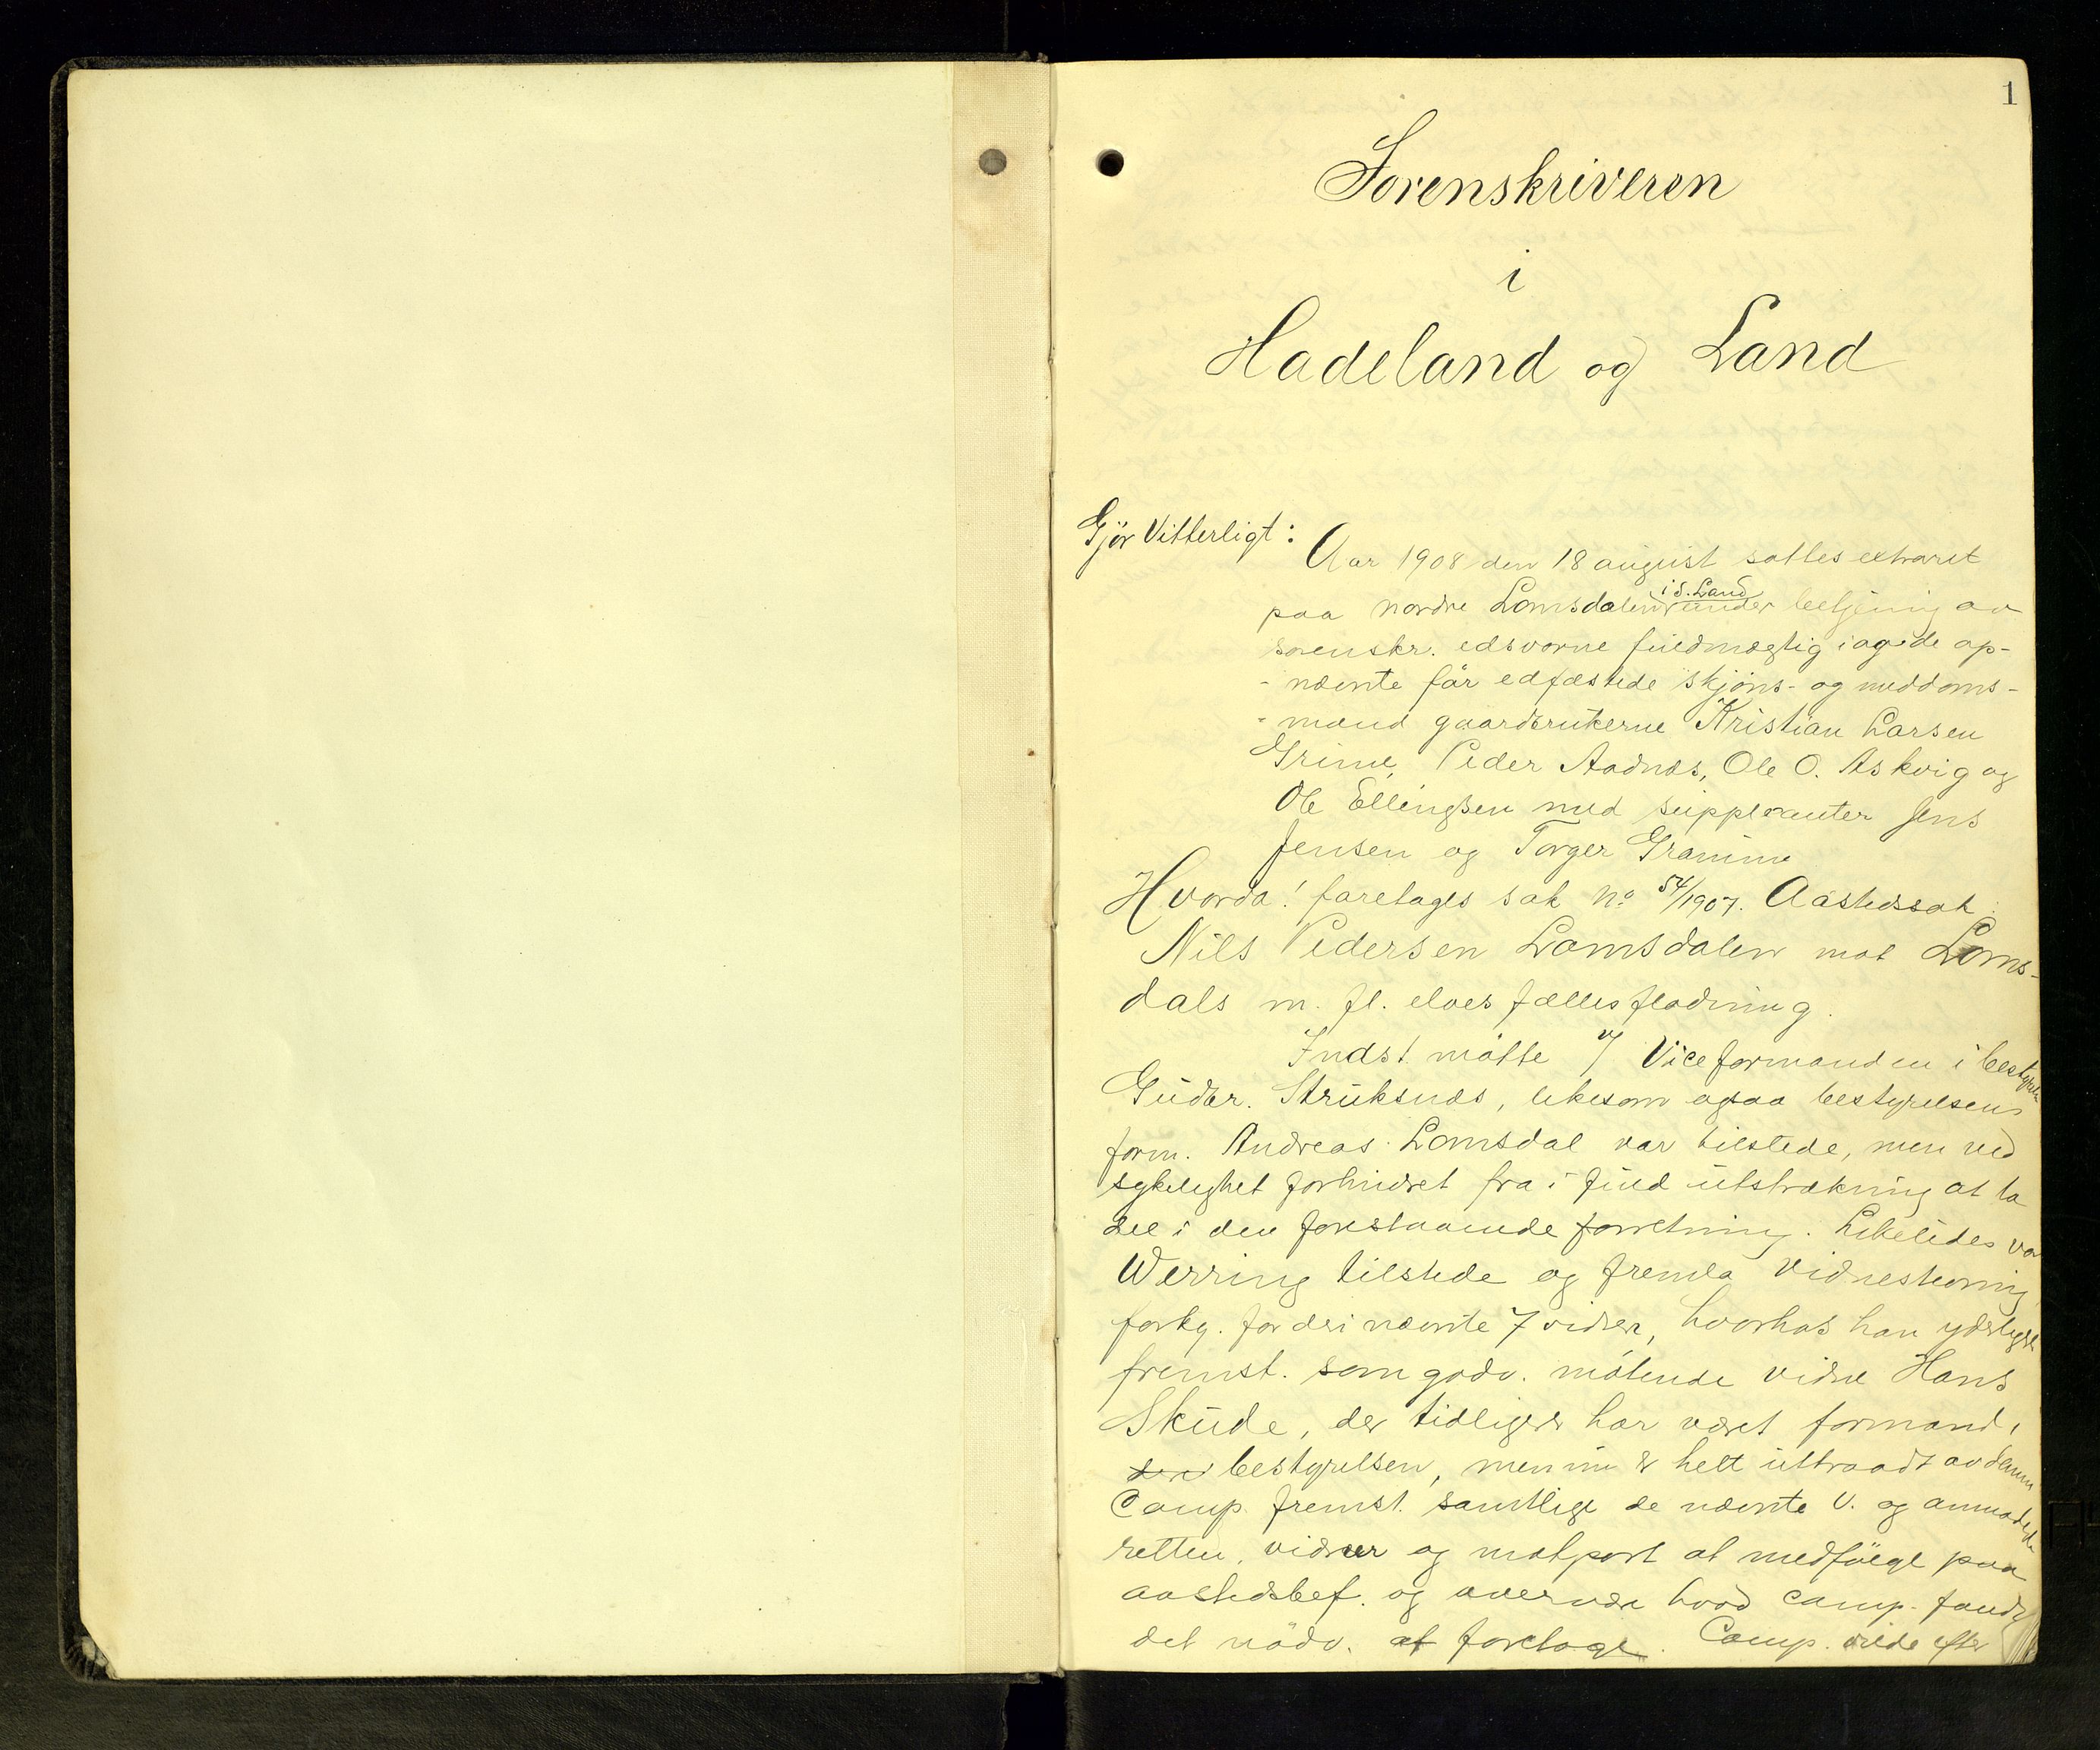 1
Sorenskriveren
i
Hadeland og Land
Gjør Vitterligt:
Aar 1908 den 18 august sattes extraret
i S. Land
paa nordre Lomsdalen under betjening av
sorenskr. edsvorne fuldmægtig i agede op-
- nævnte før edfæstede skjøns- og meddoms-
- mænd gaardbrukerne Kristian Larsen
Grime, Peder Aadnæs, Ole O. Askvig og
Ole Ellingsen med suppleanter Jens
Jensen og Torger Gramme
Hvorda! foretages sak No 54/1907. Aastedssak:
Nils Pedersen Lomsdalen mot Loms-
dals m. fl. elves fællesflødning.
Indst. møtte v/ Viceformanden i bestyrelsen
Gudbr. Struksnæs, likesom ogsaa bestyrelsens
form. Andreas Lomsdal var tilstede, men ved
sykelighet forhindret fra i fuld utstrækning at ta
del i den forestaaende forretning. Likeledes var
Werring tilstede og fremla vidnestevning
forkg. for deri nævnte 7 vidner, hvorhos han yderligere
fremst. som godv. møtende vidne Hans
Skude, der tidligere har været formand i
bestyrelsen, men nu er helt uttraadt av denne
Comp. fremst. samtlige de nævnte V. og anmodede
retten, vidner og motpart at medfølge paa
aastedsbef. og overvære hvad comp. fandt
det nødv. at foretage. Comp. vilde efter